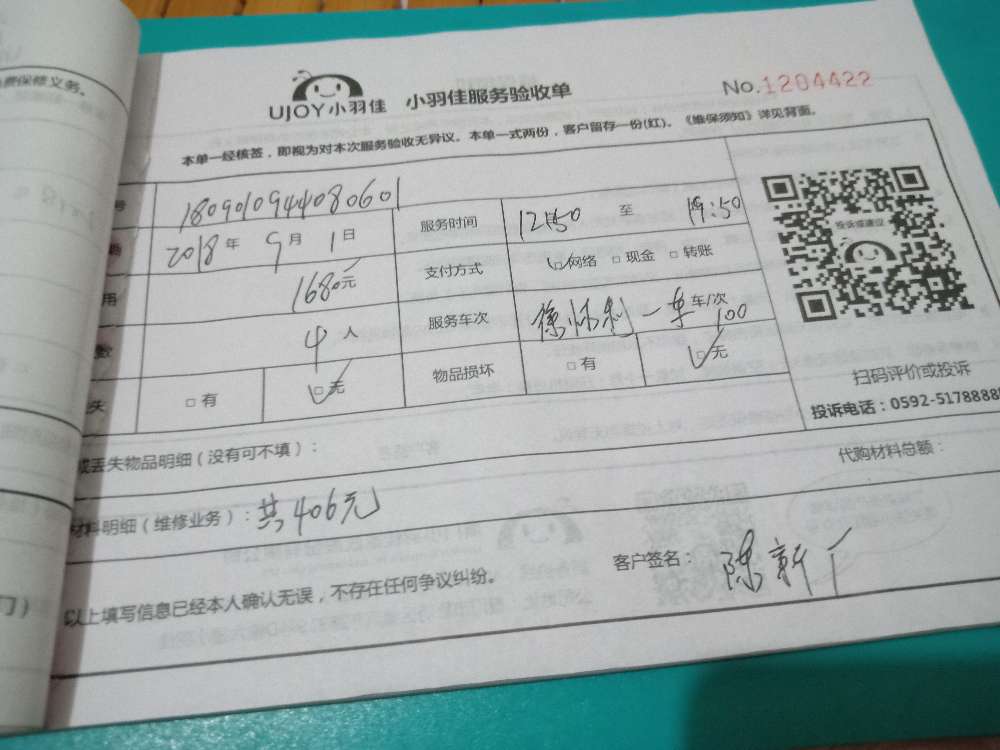 费保修义务。
UJOY小羽佳 小羽佳服务验收单
No.1204422
本单一经核签，即视为对本次服务验收无异议。本单一式两份，客户留存一份(红)。《维保须知》详见背面。
号 1809010944080601
2018年9月1日 服务时间 12:50 至 19:50
用 1680元 支付方式 □网络 □现金 □转账
数 4人 服务车次 一车 车/次 100
失 □有 □无 物品损坏 □有 □无
投诉或建议
扫码评价或投诉
投诉电话：0592-5178888
或丢失物品明细（没有可不填）：
材料明细（维修业务）：共406元 代购材料总额：
以上填写信息已经本人确认无误，不存在任何争议纠纷。 客户签名：陈新
门）